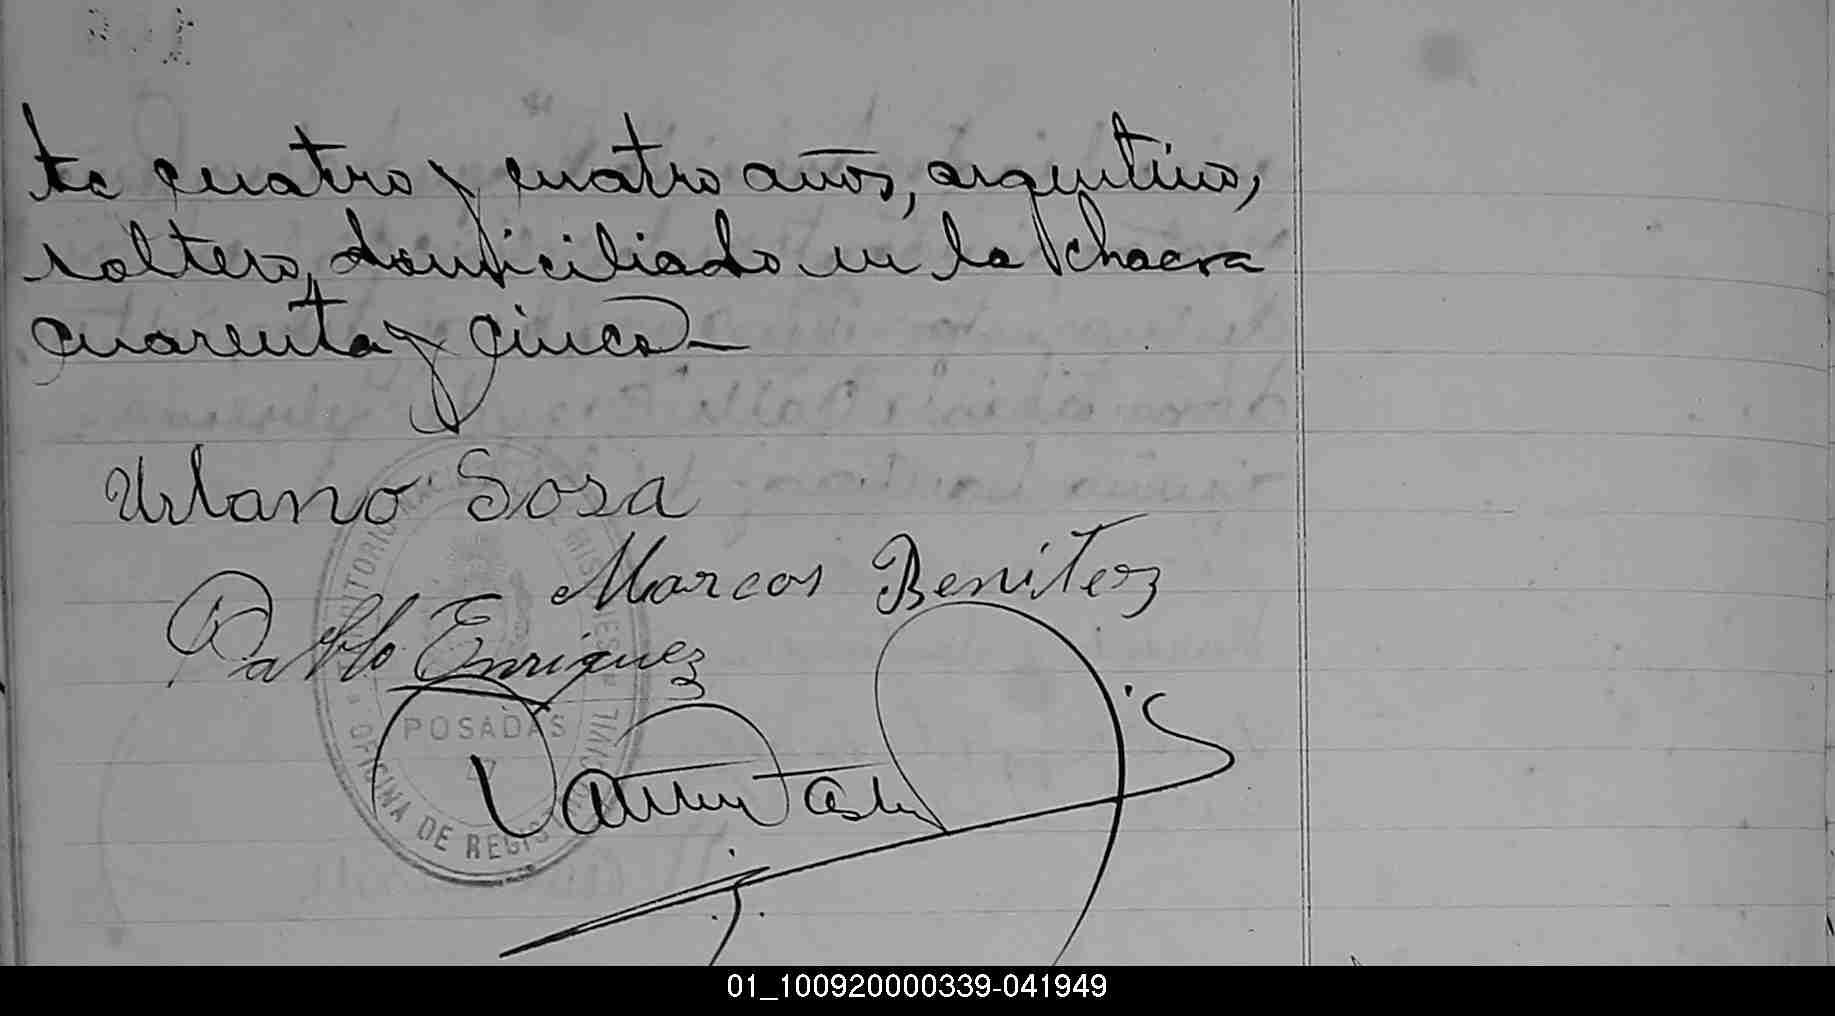 te cuatro y cuatro años, argentino,
soltero, domiciliado en la chacra
cuarenta y cinco—
Urbano Sosa
Marcos Benitez
Pablo Enriquez
POSADAS
OFICINA DE REGISTRO CIVIL
01_100920000339-041949